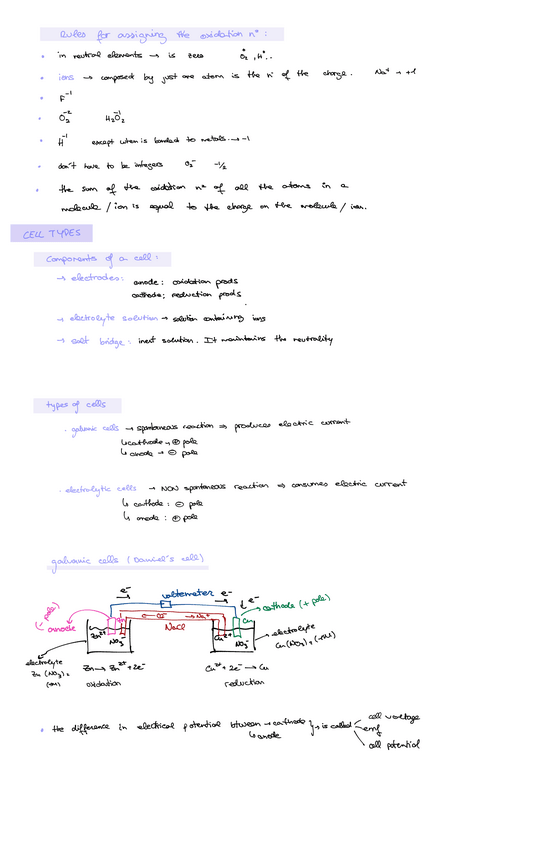 Rules for assigning the oxidation nº:
in neutral elements → is zero O₂⁰, H⁰..
ions → composed by just one atom is the nº of the charge. Na⁺ → +1
F⁻¹
O₂⁻² H₂O₂⁻¹
H⁻¹ except when is bonded to metals → -1
don't have to be integers O₂⁻ -1/2
the sum of the oxidation nº of all the atoms in a
molecule / ion is equal to the charge on the molecule / ion.
CELL TYPES
Components of a cell:
→ electrodes: anode: oxidation prods
cathode: reduction prods
→ electrolyte solution → solution containing ions
→ salt bridge: inert solution. It maintains the neutrality
types of cells
. galvanic cells → spontaneous reaction ⇒ produces electric current
↳ cathode → ⊕ pole
↳ anode → ⊖ pole
. electrolytic cells → NON spontaneous reaction ⇒ consumes electric current
↳ cathode: ⊖ pole
↳ anode: ⊕ pole
galvanic cells (Daniel's cell)
e⁻ voltameter e⁻
e⁻
(- pole) anode
cathode (+ pole)
Zn ← Cl⁻ → Na⁺ Cu
NaCl
Zn²⁺ NO₃⁻ Cu²⁺ NO₃⁻
electrolyte Zn(NO₃)₂ (1M)
electrolyte Cu(NO₃)₂ (1M)
Zn → Zn²⁺ + 2e⁻ Cu²⁺ + 2e⁻ → Cu
oxidation reduction
the difference in electrical potential btween → cathode } → is called cell voltage
↳ anode emf
cell potential